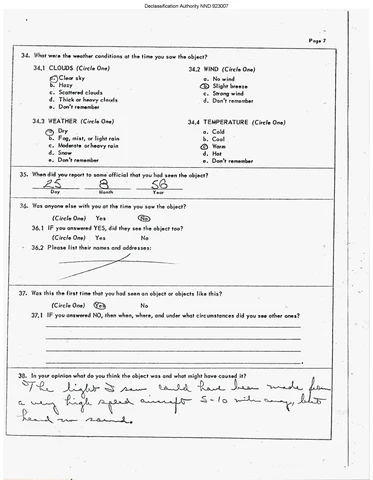 Declassification Authority NND 923007
Page 7
34. What were the weather conditions at the time you saw the object?
34.1 CLOUDS (Circle One) 34.2 WIND (Circle One)
a. Clear sky a. No wind
b. Hazy b. Slight breeze
c. Scattered clouds c. Strong wind
d. Thick or heavy clouds d. Don't remember
e. Don't remember
34.3 WEATHER (Circle One) 34.4 TEMPERATURE (Circle One)
a. Dry a. Cold
b. Fog, mist, or light rain b. Cool
c. Moderate or heavy rain c. Warm
d. Snow d. Hot
e. Don't remember e. Don't remember
35. When did you report to some official that you had seen the object?
25 8 56
Day Month Year
36. Was anyone else with you at the time you saw the object?
(Circle One) Yes No
36.1 IF you answered YES, did they see the object too?
(Circle One) Yes No
36.2 Please list their names and addresses:
37. Was this the first time that you had seen an object or objects like this?
(Circle One) Yes No
37.1 IF you answered NO, then when, where, and under what circumstances did you see other ones?
38. In your opinion what do you think the object was and what might have caused it?
The light I saw could have been made from
a very high speed aircraft 5-10 miles away, but
heard no sound.